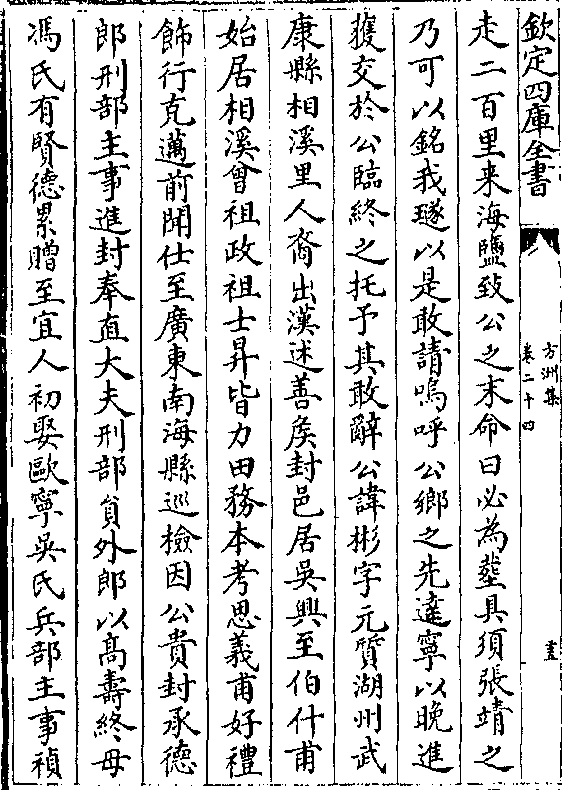 欽定四庫全書
方洲集
卷二十四
走二百里来海鹽致公之末命曰必為塟具須張靖之
乃可以銘我璲以是敢請嗚呼公鄉之先達寧以晚進
獲交於公臨終之托予其敢辭公諱彬字元質湖州武
康縣相溪里人裔出漢述善侯封邑居吳興至伯什甫
始居相溪曾祖政祖士昇皆力田務本考思義甫好禮
飾行克邁前聞仕至廣東南海縣巡檢因公貴封承德
郎刑部主事進封奉直大夫刑部貟外郎以髙壽終母
馮氏有賢德累贈至宜人初娶歐寧吳氏兵部主事禎